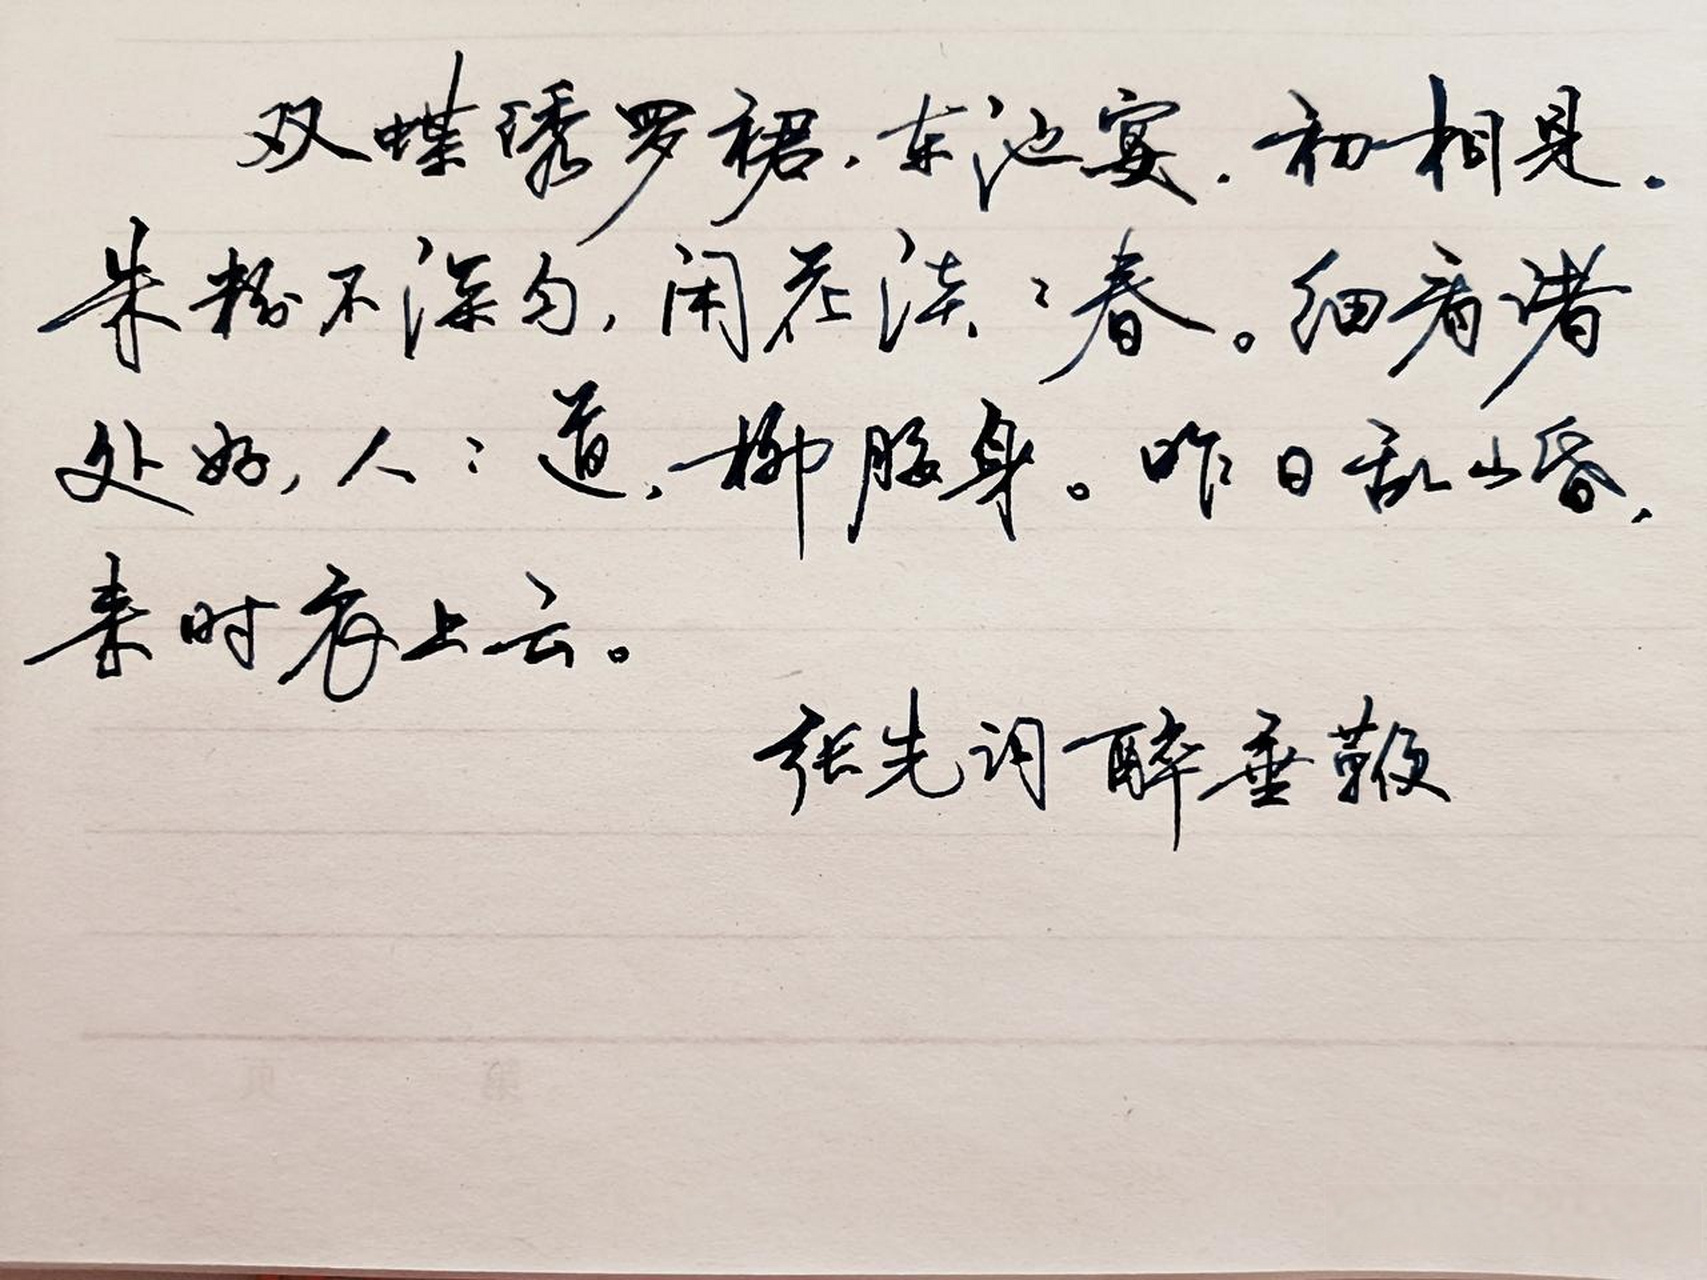 双蝶绣罗裙，东池宴，初相见。
朱粉不深匀，闲花淡〻春。细看诸
处好，人〻道，柳腰身。昨日乱山昏，
来时衣上云。
张先词醉垂鞭